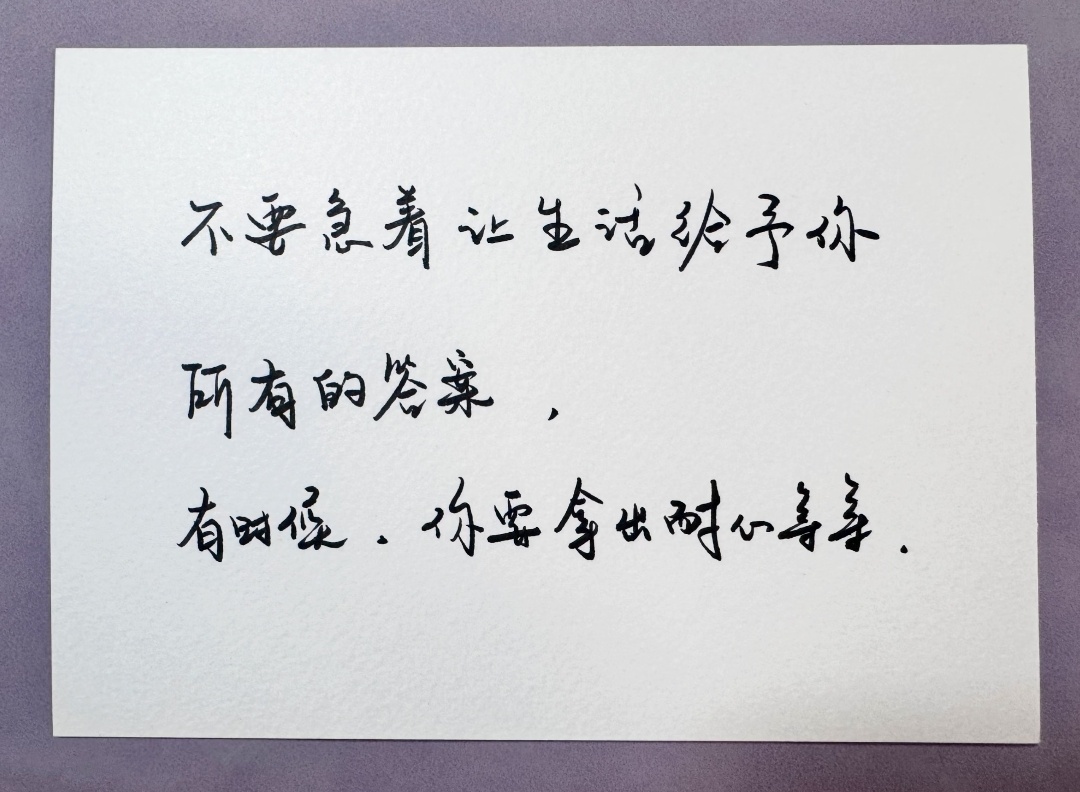 不要急着让生活给予你
所有的答案，
有时候，你要拿出耐心等等.